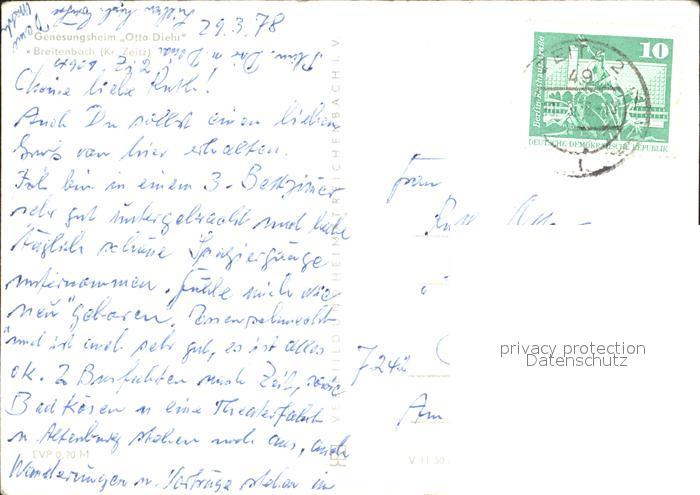 29.3.78
Genesungsheim „Otto Diehr"
Breitenbach (Kr. Zeitz)
liebe Ruth!
Auch Du sollst einen lieben
Gruß von hier erhalten.
Ich bin in einem 3-Bettzimmer
sehr gut untergebracht und habe
täglich schöne Spaziergänge
unternommen. Fühle mich wie
neu geboren. Essen schmeckt
und ist auch sehr gut, es ist alles
ok. 2 Busfahrten nach Zeitz, sowie
Bad Kösen u eine Theaterfahrt
n. Altenburg stehen noch aus, auch
Wanderungen u. Vorträge stehen im
EVP 0,20 M
V 11 50
Frau
Ruth
724
Am
10
Berlin, Rathausstraße
DEUTSCHE DEMOKRATISCHE REPUBLIK
ZEITZ 2
49
privacy protection
Datenschutz